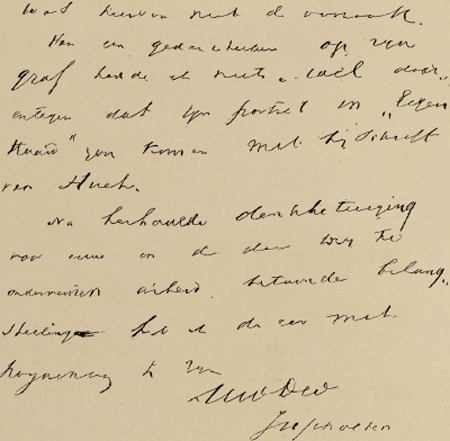 hiervan niet de oorzaak.
Van een gedenkteeken op zijn
graf hoorde ik niets, wèl daar-
entegen dat zijn portret in „Eigen
Haard” zou komen met bijschrift
van Huet.
Na herhaalde dankbetuiging
voor uwe in de door mij te
ondernemen arbeid betoonde belang-
stelling heb ik de eer met
te zijn
UwDw